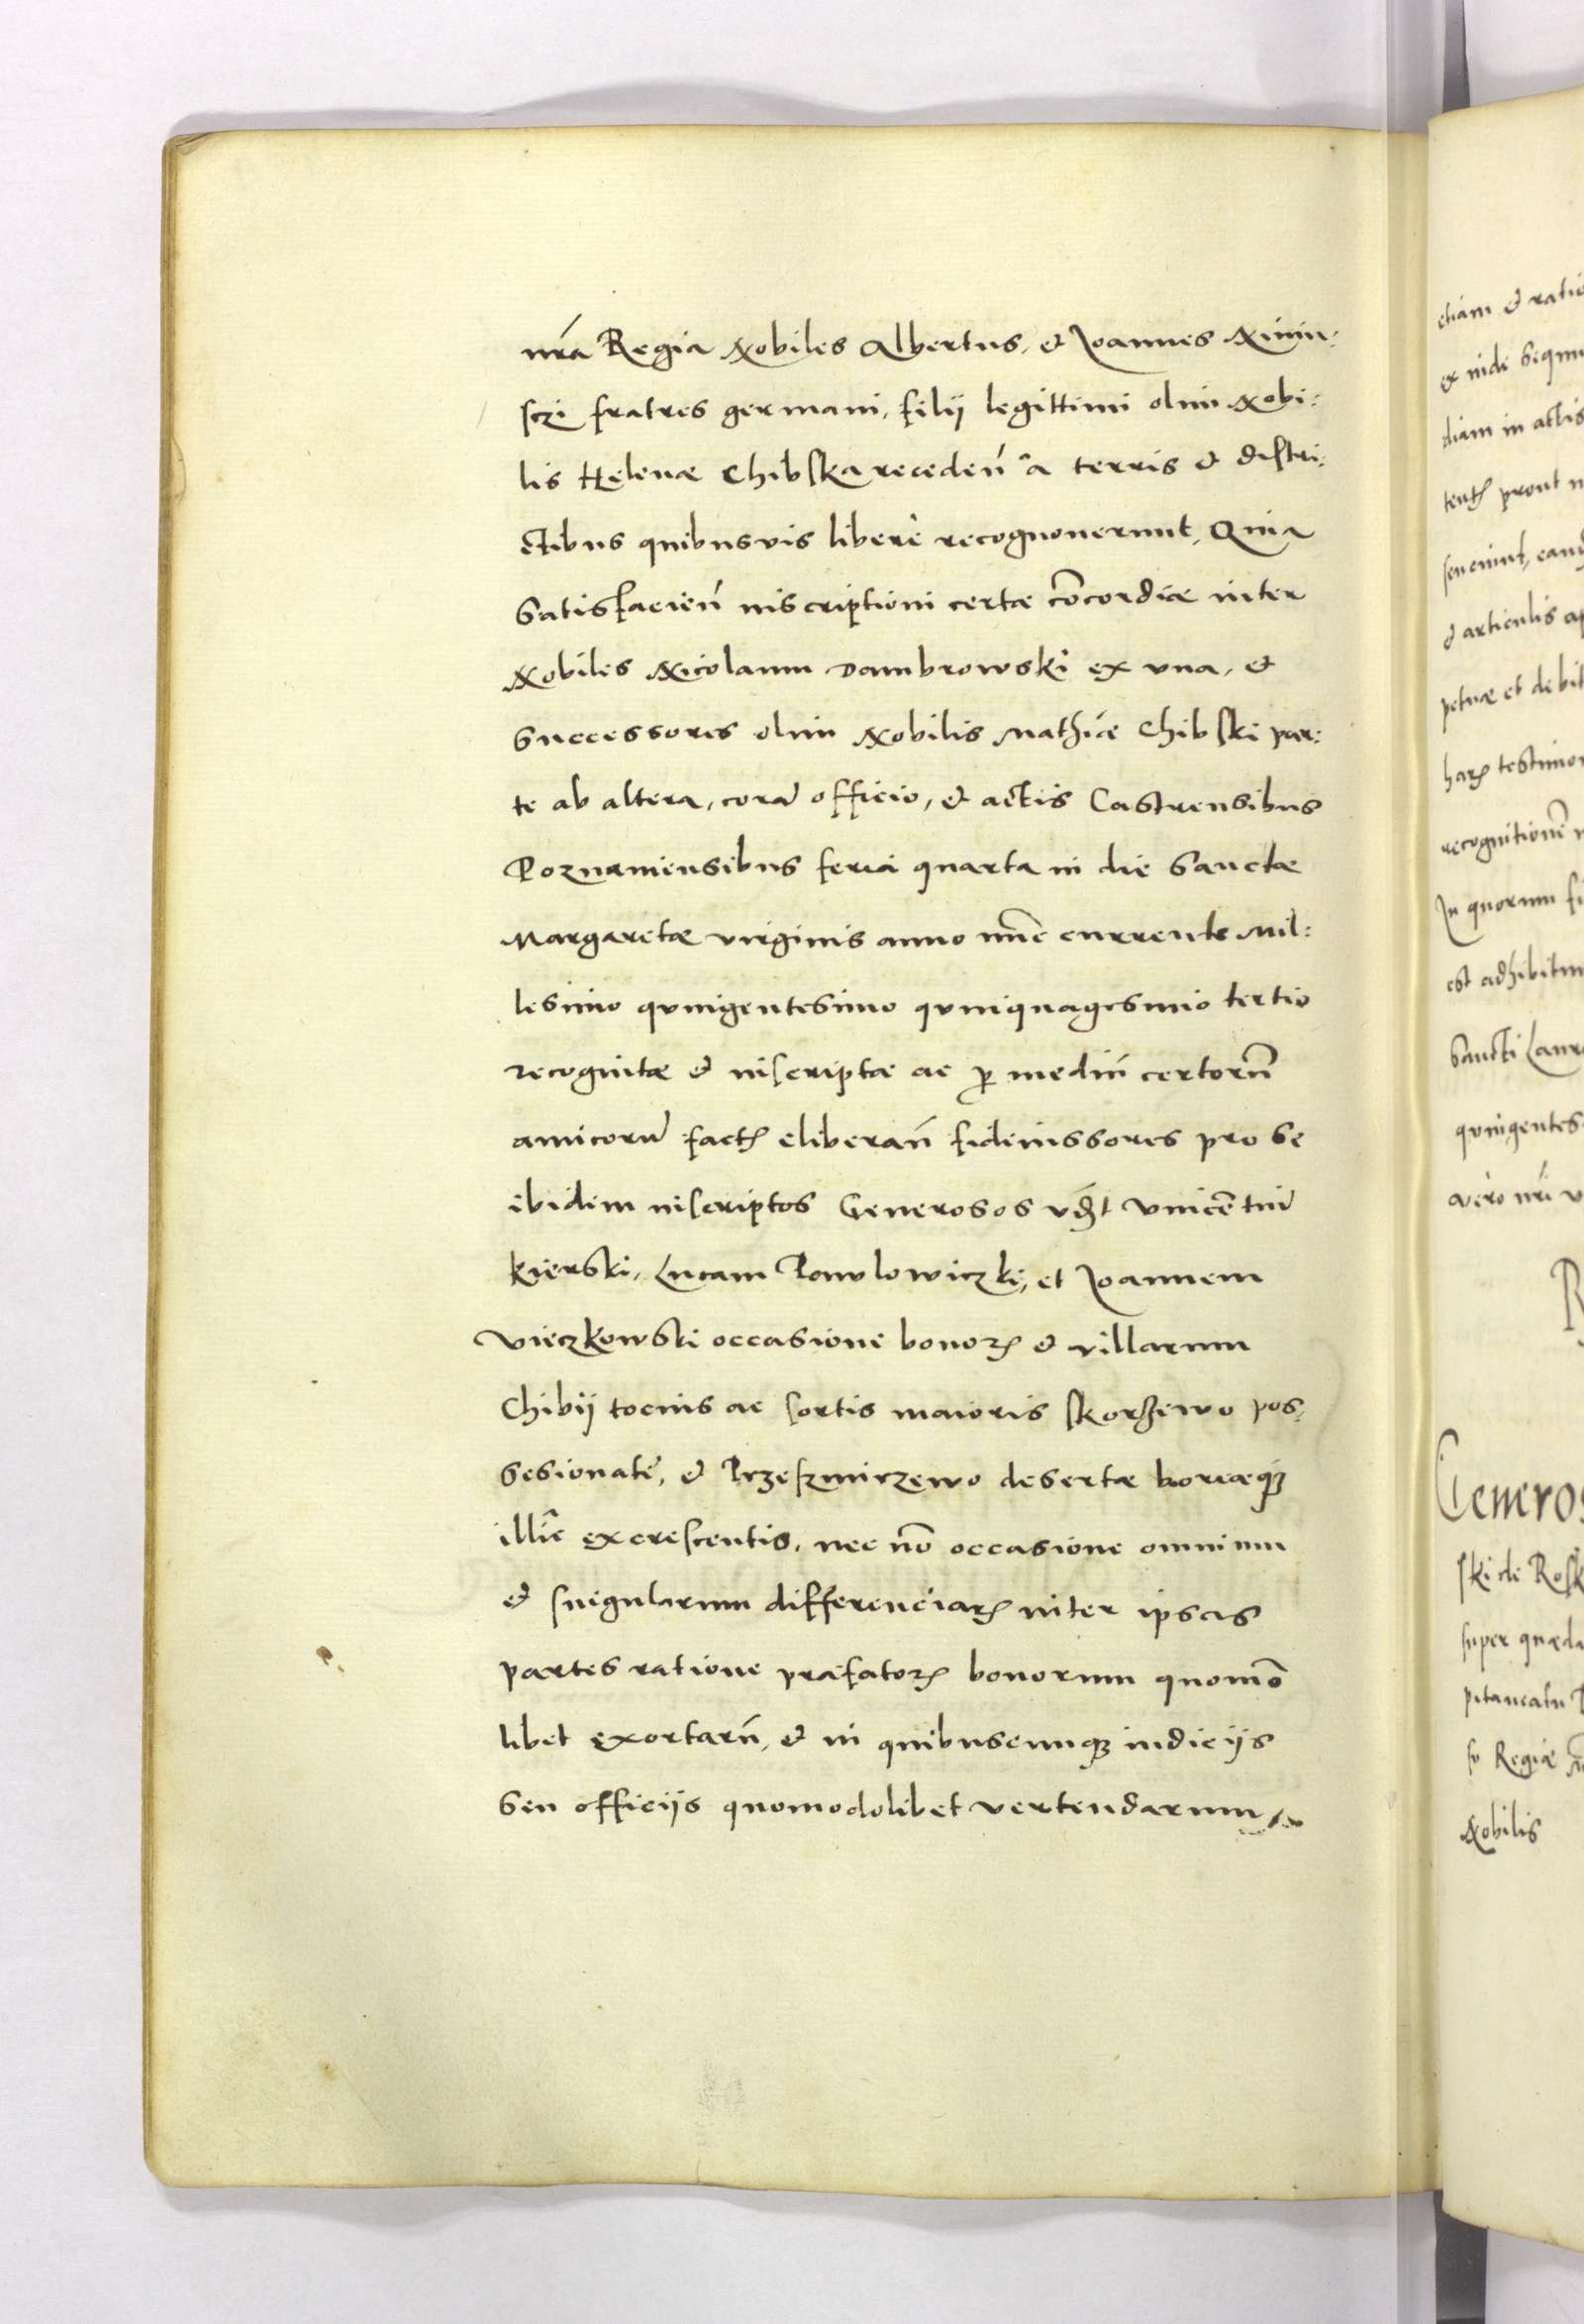 nrã Regia Nobiles Albertus, et Joannes Ninin:
sczi fratres germani, filij legittimi olim Nobi:
lis Helenæ Chibska receden̄ â terris et distri:
ctibus quibusvis liberè recognouerunt, Quia
Satisfacien̄ inscriptioni certæ cōcordiæ inter
Nobiles Nicolaum Dambrowski ex vna, et
Successores olim Nobilis Mathiæ Chibski par:
te ab altera, corā officio, et actis Castrensibus
Poznaniensibus feria quarta in die Sanctæ
Margaretæ virginis anno nūc currente Mil:
lesimo quingentesimo quinquagesimo tertio
recognitæ et inscriptæ ac p mediū certorū
amicorū fact eliberan̄ fideiussores pro se
ibidem inscriptos Generosos vdzt Vincētiū
Kierski, Lucam Pawlowiczki, et Joannem
Vieczkowski occasione bonor et villarum
Chibij tocius ac sortis maioris Skorzewo pos:
sesionatē, et Przeszmirzewo desertæ boriæq;
illîc excrescentis, nec nō occasione omnium
et singularum differenciar inter ipsas
partes ratione præfator bonorum quomō
libet exortarū, et in quibuscunq; iudicijs
seu officijs quomodolibet vertendarum
etiam et ratio
ex inde sequu
diam in actis
tent prout
seu eniut, eand
et articulis
petuæ et debit
har testimo
recognitionē
In quorum fi
est adhibitum
Sancti Laur
quingentes
vero nri
Generos
ski de Rosk
super quæda
pitaneatu
Regiæ
Nobilis